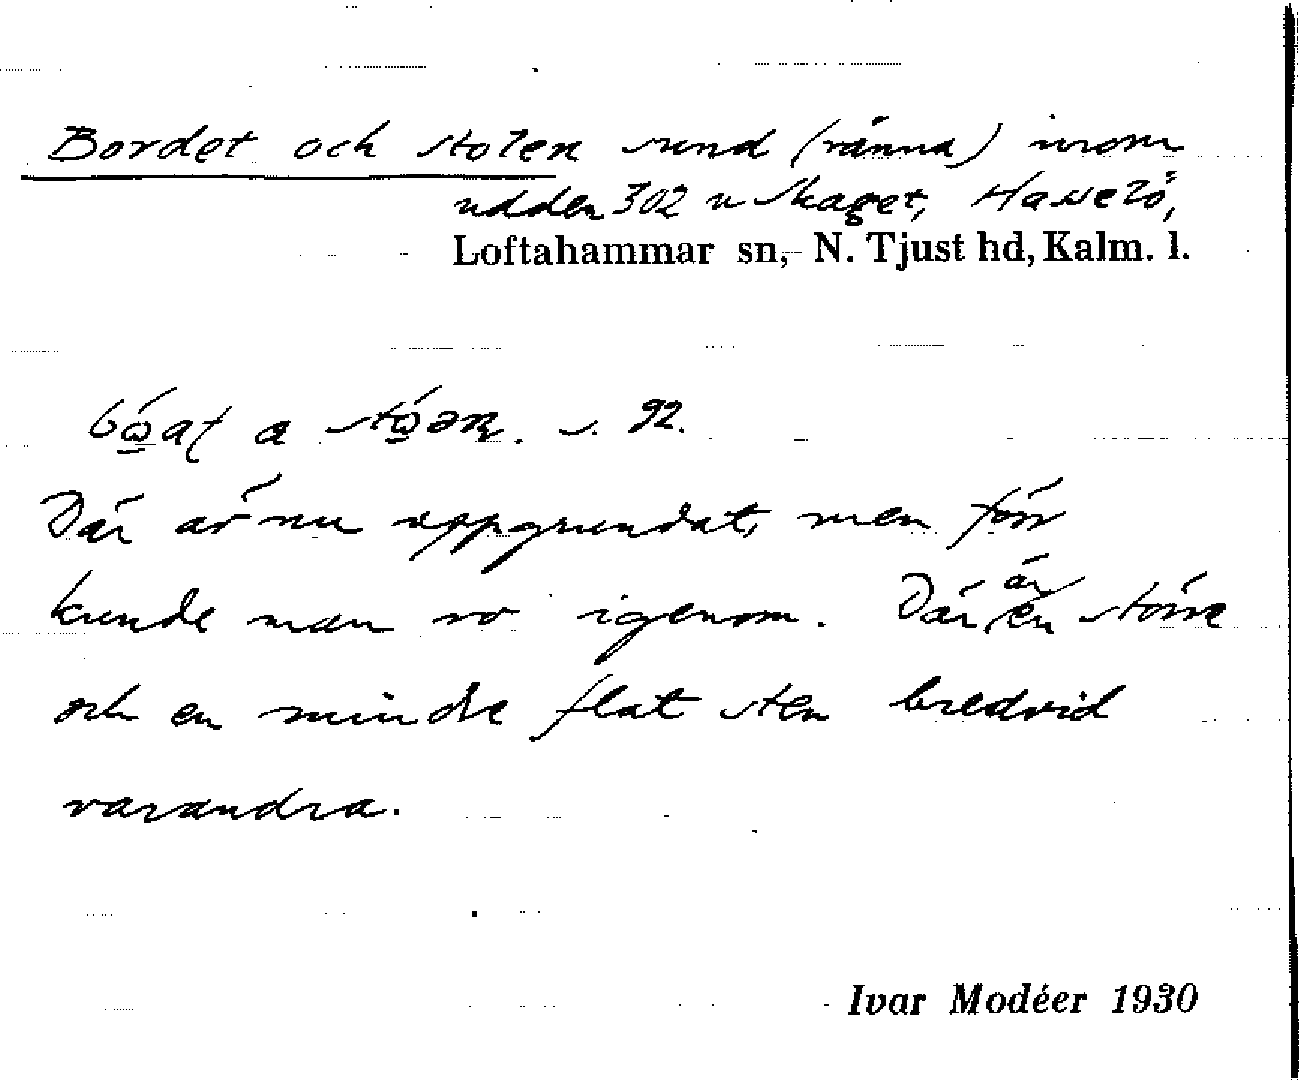 Bordet och stolen sund (ränna) inom
udden 302 n Skaget, Hasselö,
Loftahammar sn, N. Tjust hd, Kalm. l.
a s. 92.
Där är nu uppgrundat, men förr
kunde man ro igenom. Där är en större
och en mindre flat sten bredvid
varandra.
Ivar Modéer 1930